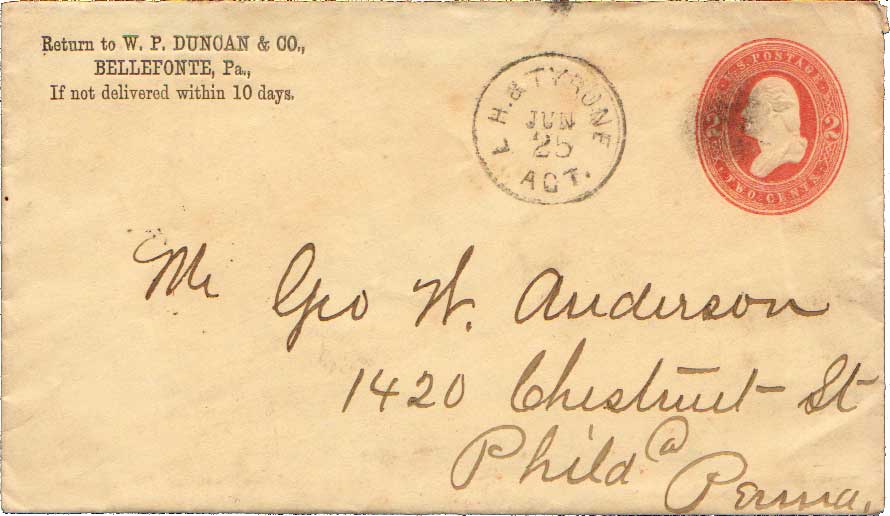 Return to W. P. DUNCAN & CO.,
BELLEFONTE, Pa.,
If not delivered within 10 days.
L. H. & TYRONE
JUN
25
AGT.
U.S. POSTAGE
2 2
TWO CENTS
Mr Geo W. Anderson
1420 Chestnut St
Philda
Penna,